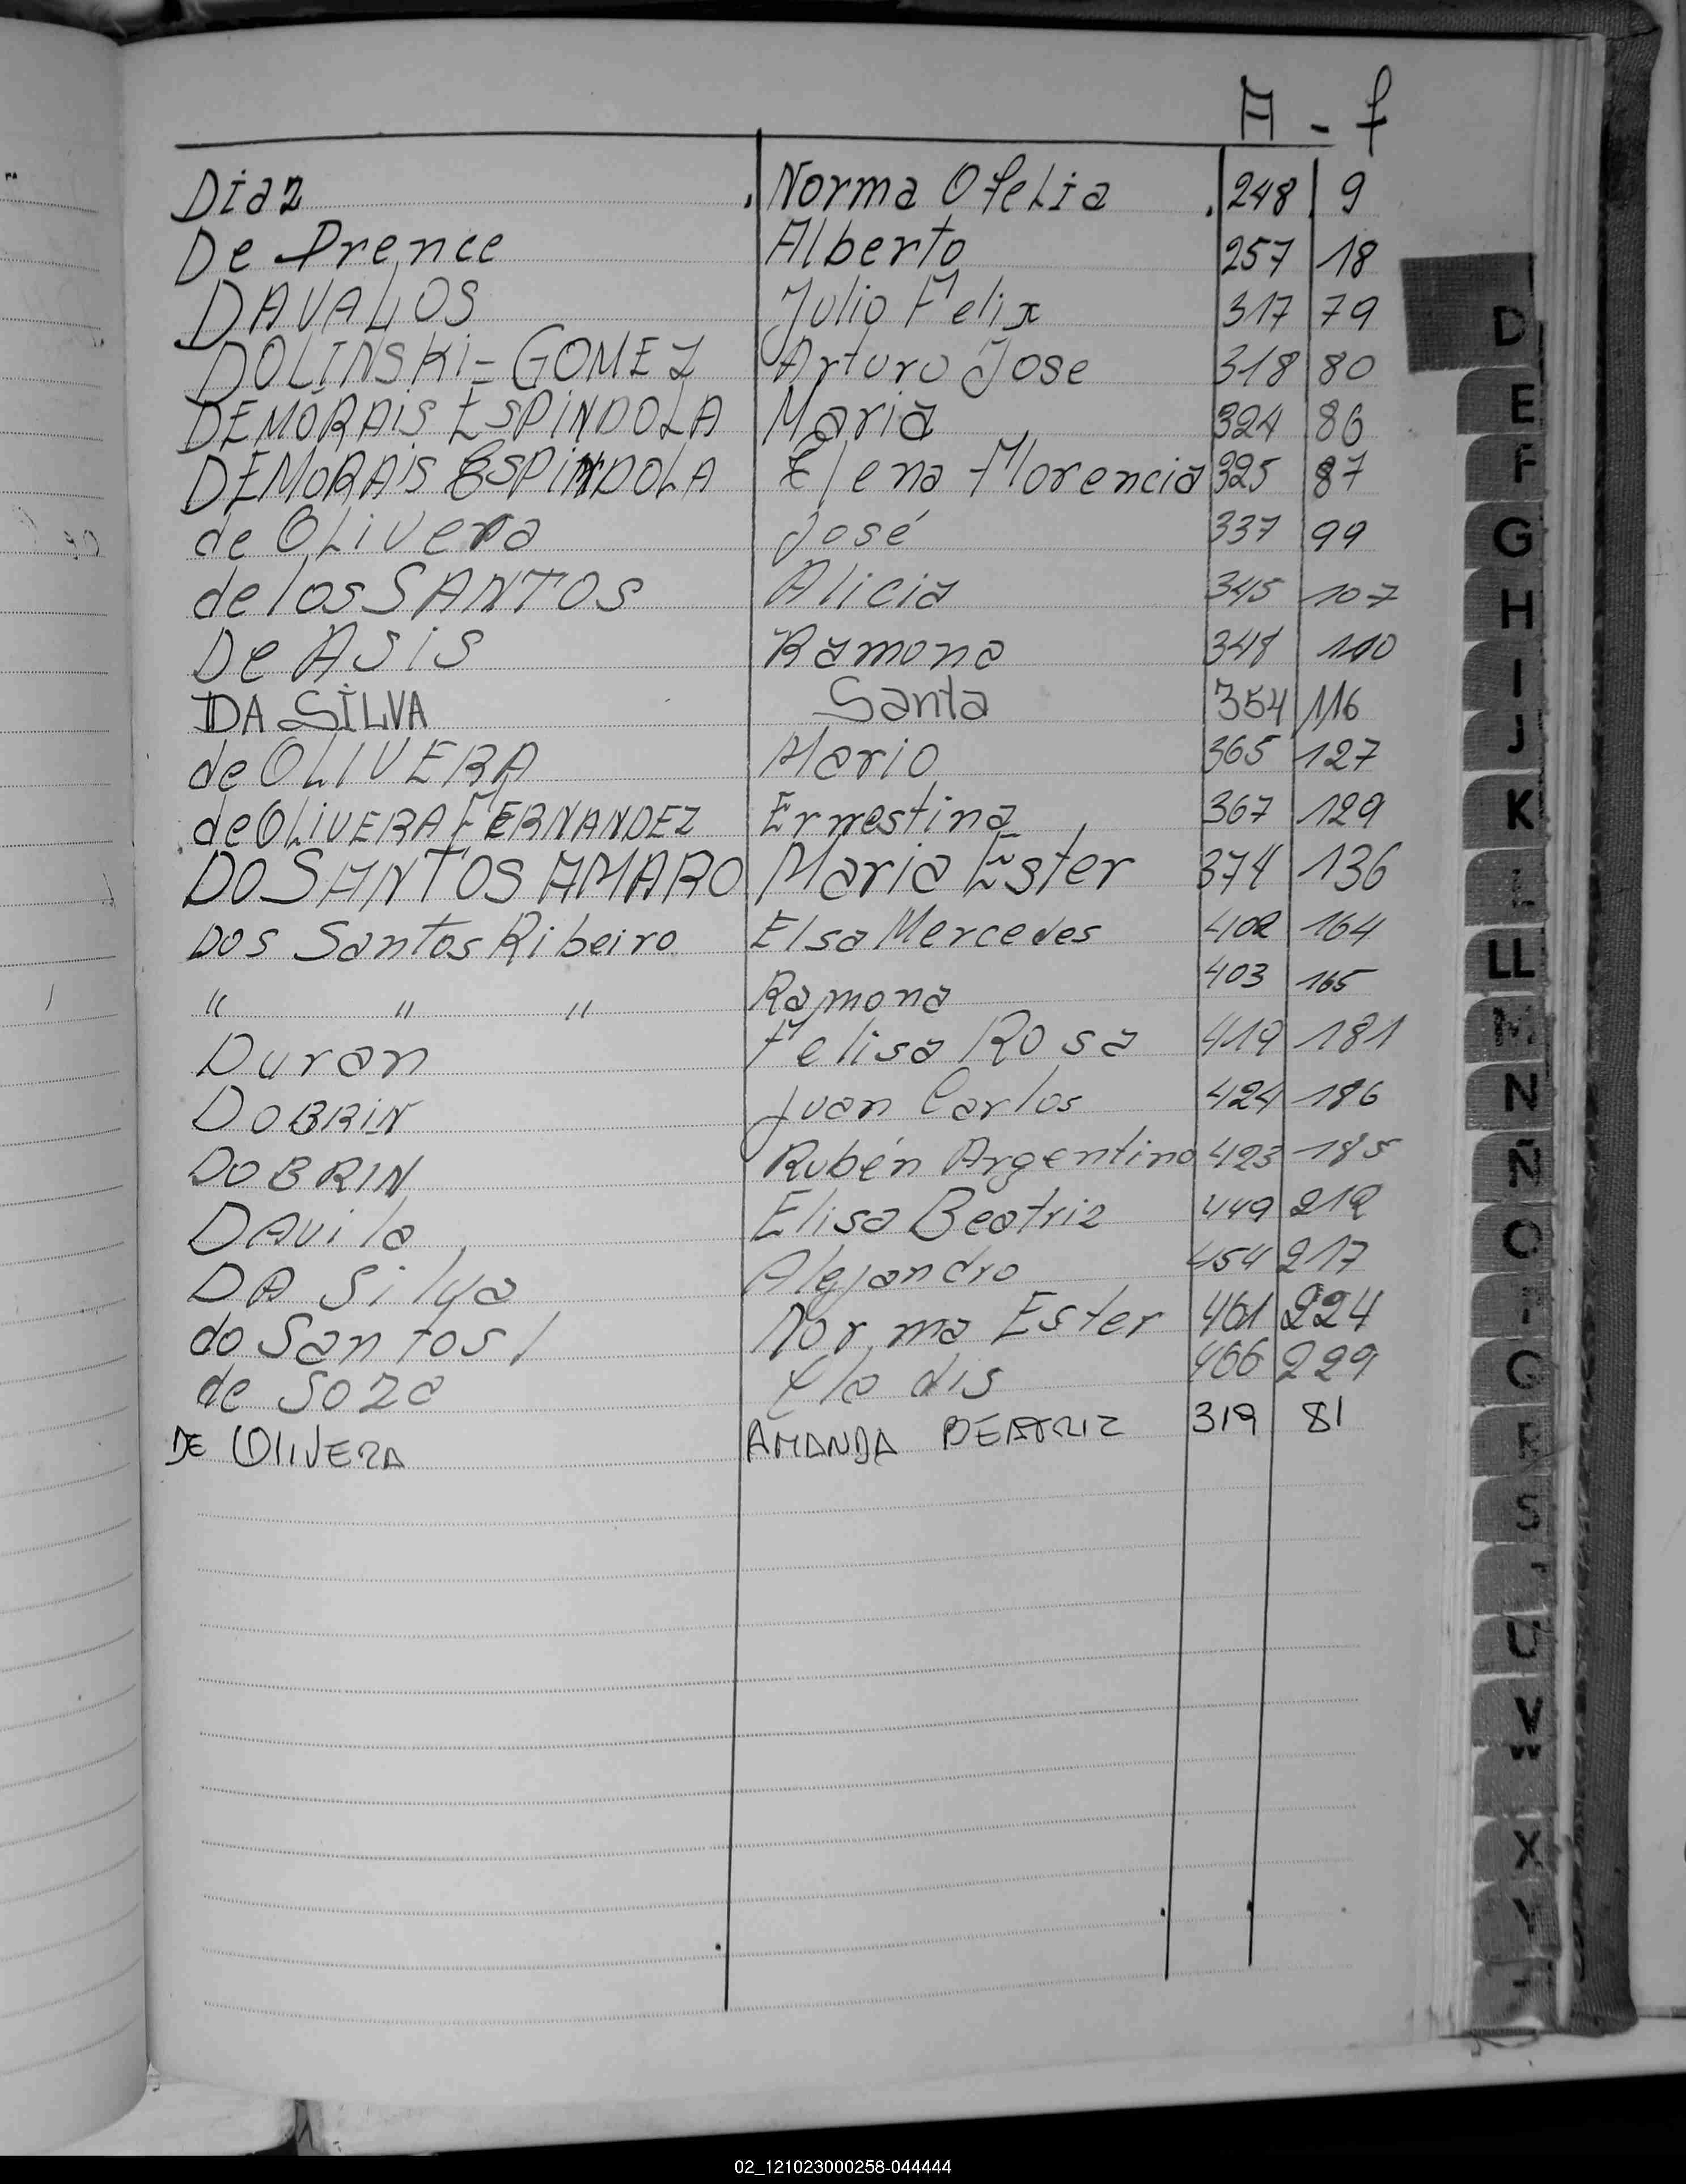 A - f
Diaz Norma Ofelia 248 9
De Prence Alberto 257 18
DAVALOS Julio Felix 317 79
DOLINSKi - GOMEZ Arturo Jose 318 80
DEMORAiS ESPiNDOLA Maria 324 86
DEMORAiS ESPiNDOLA Elena Florencia 325 87
de OLivera José 337 99
de los SANTOS Alicia 345 107
De ASiS Ramona 348 110
DA SILVA Santa 354 116
de OLIVERA Mario 365 127
de OLiVERA FERNANDEZ Ernestina 367 129
DO SANTOS AMARO Maria Ester 374 136
DOS Santos Ribeiro Elsa Mercedes 402 164
" " " Ramona 403 165
Duran Felisa Rosa 419 181
DOBRIN Juan Carlos 424 186
DOBRIN Rubén Argentino 423 185
DAvila Elisa Beatriz 449 212
DA Silva Alejandro 454 217
do Santos Norma Ester 461 224
de Soza dis 466 229
DE OLIVERA AMANDA BEATRIZ 319 81
D
E
F
G
H
I
J
K
L
LL
M
N
Ñ
O
S
U
V
W
X
Y
02_121023000258-044444